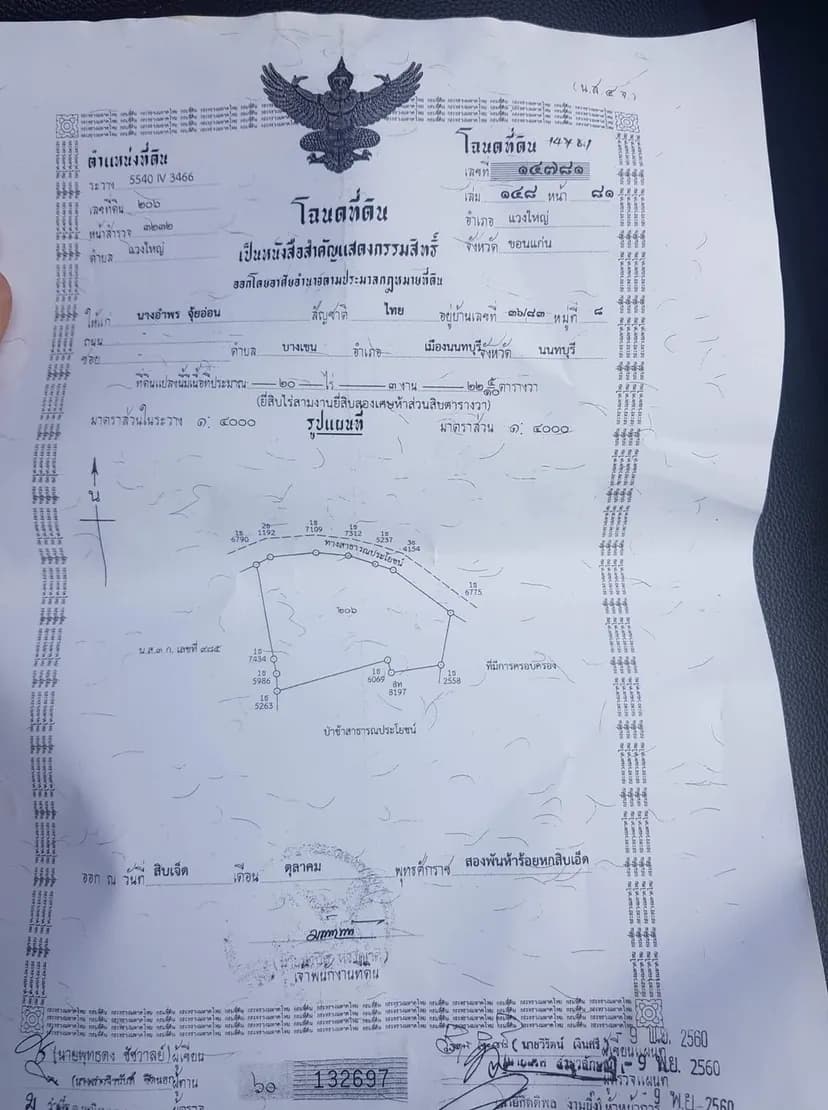 (น.ส ๔ จ.)
ตำแหน่งที่ดิน
ระวาง 5540 IV 3466
เลขที่ดิน ๒๐๖
หน้าสำรวจ ๓๒๓๒
ตำบล แวงใหญ่
โฉนดที่ดิน
เลขที่ ๑๔๗๘๑
เล่ม ๑๔๘ หน้า ๘๑
อำเภอ แวงใหญ่
จังหวัด ขอนแก่น
โฉนดที่ดิน
เป็นหนังสือสำคัญแสดงกรรมสิทธิ์
ออกโดยอาศัยอำนาจตามประมวลกฎหมายที่ดิน
ให้แก่ นางอำพร จุ้ยอ่อน สัญชาติ ไทย อยู่บ้านเลขที่ ๓๖/๘๓ หมู่ที่ ๘
ถนน -
ซอย - ตำบล บางเขน อำเภอ เมืองนนทบุรี จังหวัด นนทบุรี
ที่ดินแปลงนี้มีเนื้อที่ประมาณ ๒๐ ไร่ ๓ งาน ๒๒ ๕/๑๐ ตารางวา
(ยี่สิบไร่สามงานยี่สิบสองเศษห้าส่วนสิบตารางวา)
มาตราส่วนในระวาง ๑: ๔๐๐๐ รูปแผนที่ มาตราส่วน ๑: ๔๐๐๐
น
1ธ 6790
2ธ 1192
1ธ 7109
1ธ 7312
1ธ 5237
3ธ 4154
ทางสาธารณประโยชน์
1ธ 6775
๒๐๖
น.ส.๓ ก. เลขที่ ๙๘๕
1ธ 7434
1ธ 5986
1ธ 5263
1ธ 6069
8ท 8197
1ธ 2558
ที่มีการครอบครอง
ป่าช้าสาธารณประโยชน์
ออก ณ วันที่ สิบเจ็ด เดือน ตุลาคม พุทธศักราช สองพันห้าร้อยหกสิบเอ็ด
เจ้าพนักงานที่ดิน
(นายพุทธดง ชัชวาลย์) ผู้เขียน
ผู้ทาน
๖๐ 132697
(นายวิรัตน์ เงินศรี) ผู้เขียนแผนที่
- 9 พ.ย. 2560
ผู้ตรวจแผนที่
- 9 พ.ย. 2560
- 9 พ.ย. 2560